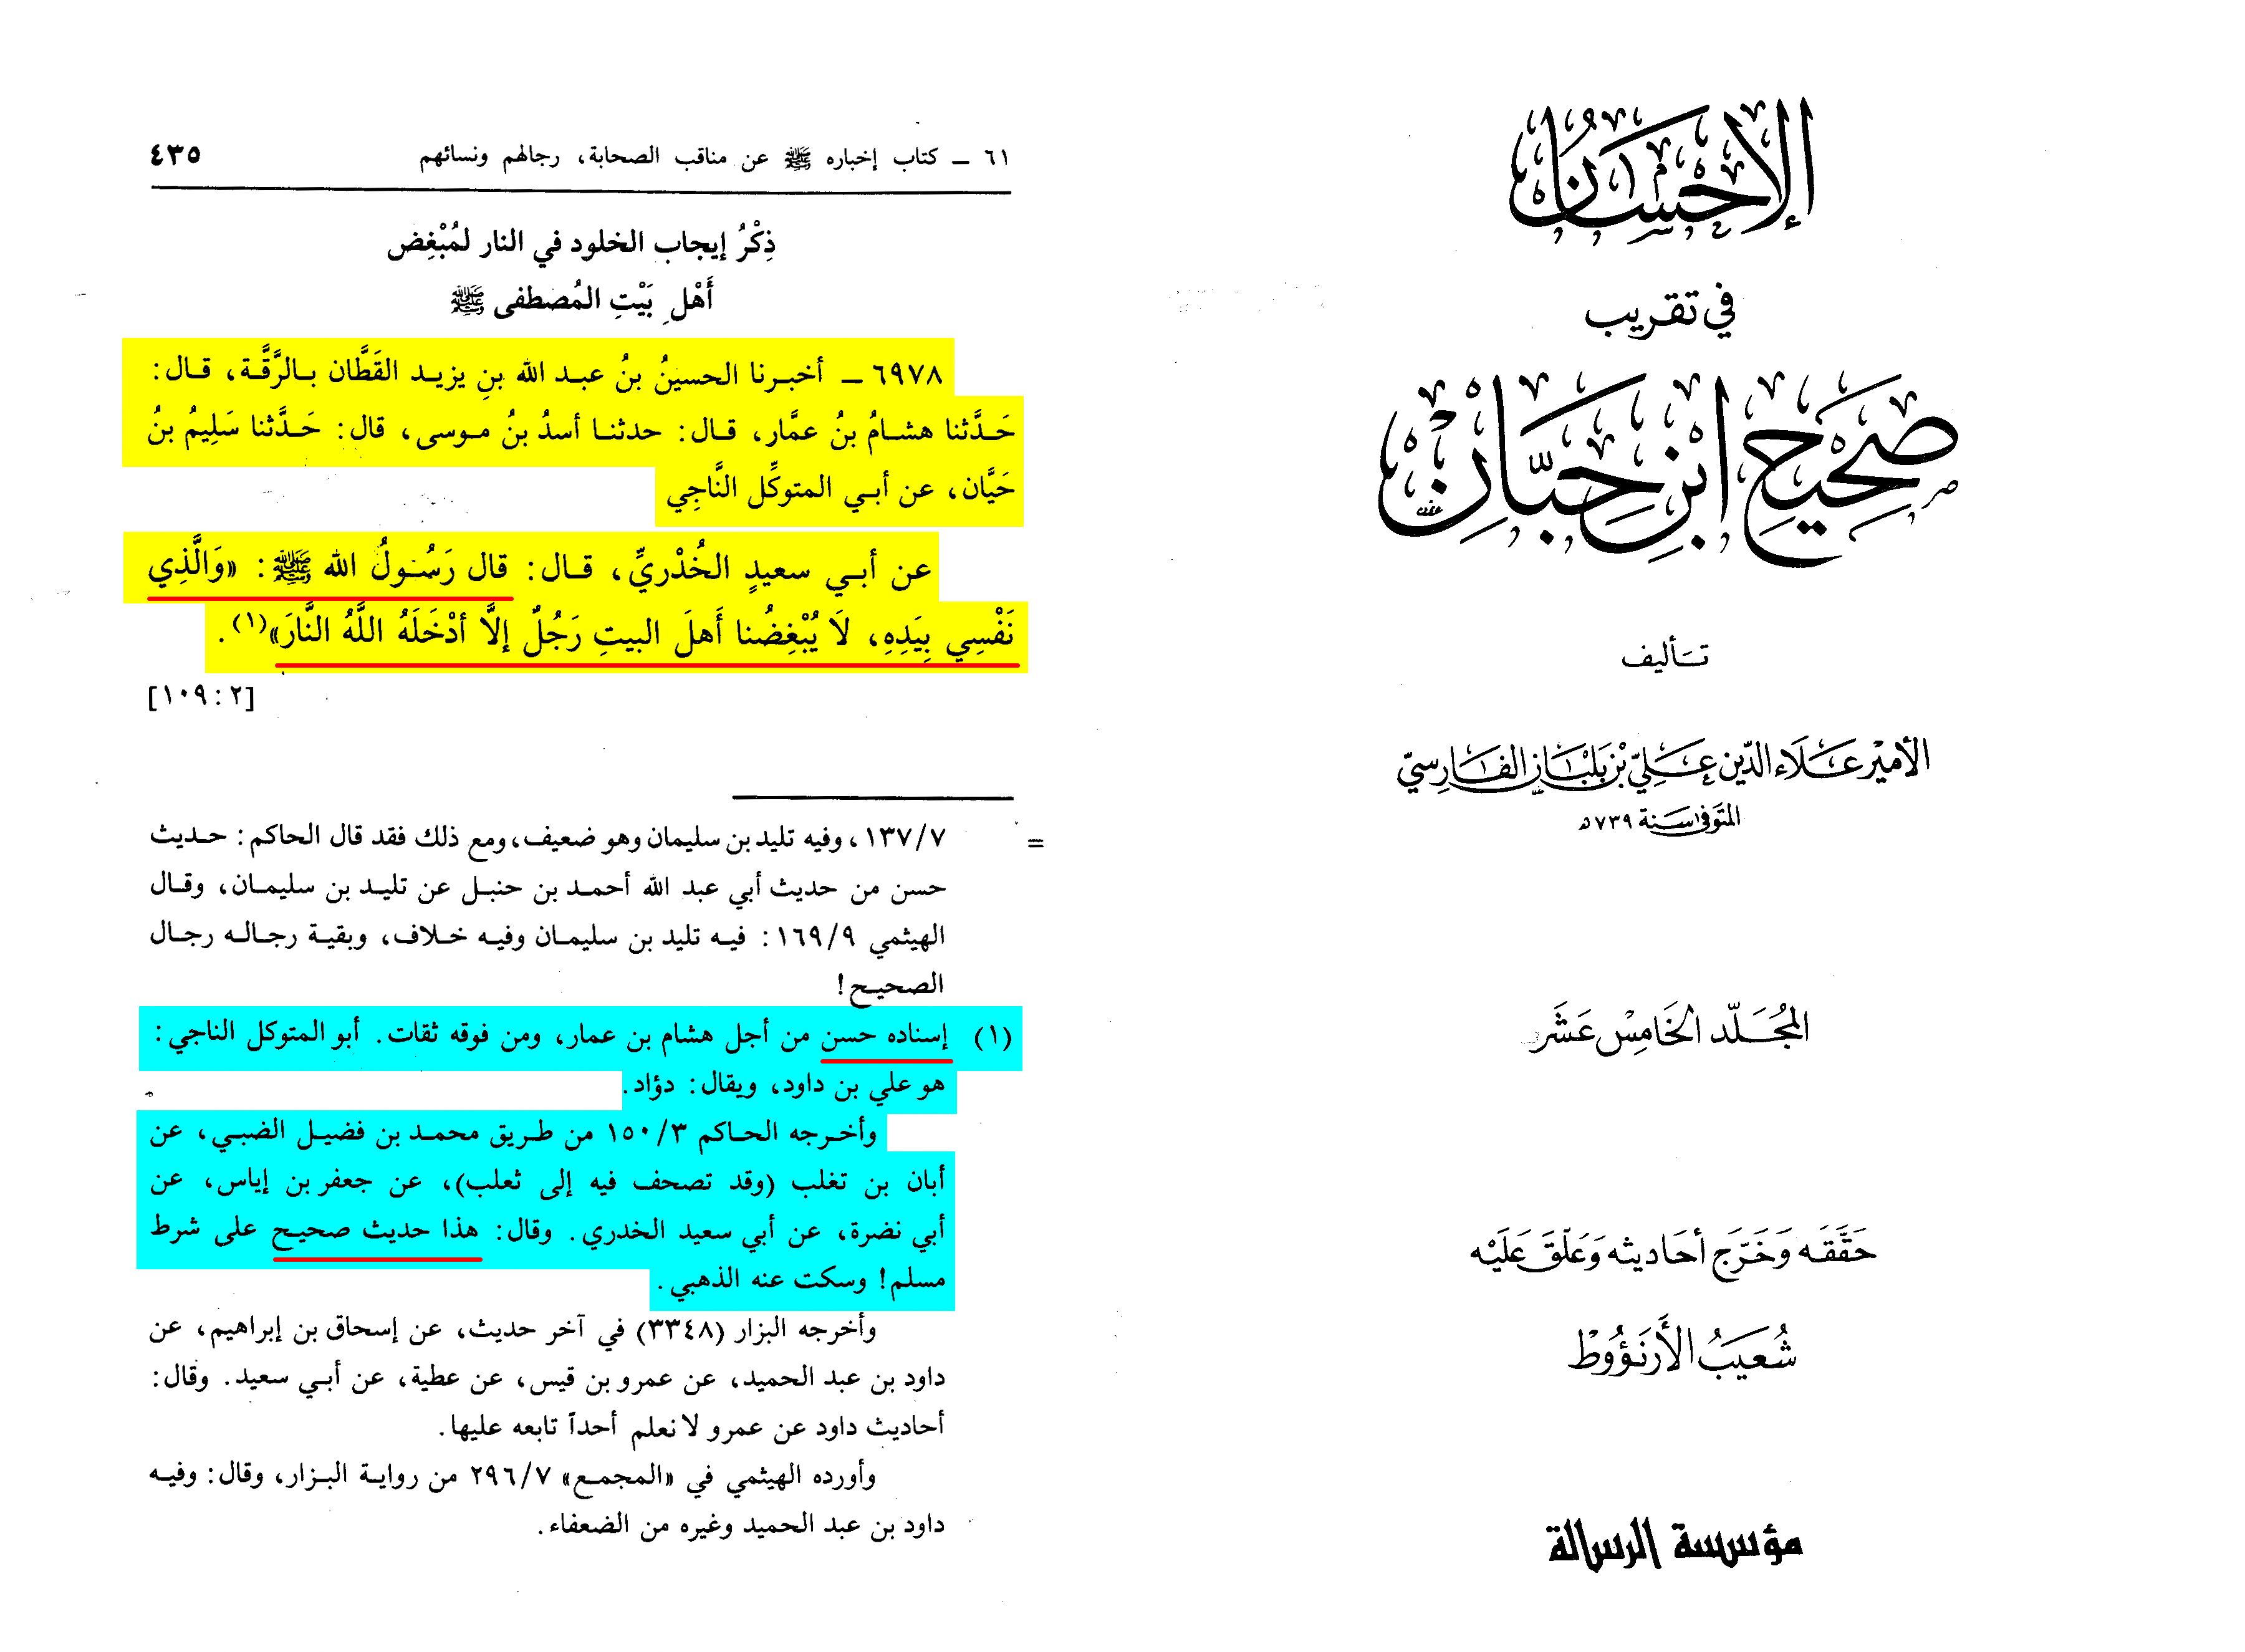 الإحسان
في تقريب
صحيح ابن حبان
تأليف
الأمير علاء الدين علي بن بلبان الفارسي
المتوفى سنة ٧٣٩ هـ
المجلد الخامس عشر
حققه وخرج أحاديثه وعلق عليه
شعيب الأرنؤوط
مؤسسة الرسالة
٦١ ـ كتاب إخباره ﷺ عن مناقب الصحابة، رجالهم ونسائهم ٤٣٥
ذِكْرُ إيجاب الخلود في النار لمُبْغِض
أَهْلِ بَيْتِ المُصطفى ﷺ
٦٩٧٨ ـ أخبرنا الحسينُ بنُ عبد الله بنِ يزيد القَطَّان بالرَّقَّة، قال:
حَدَّثنا هشامُ بنُ عمَّار، قال: حدثنا أسدُ بنُ موسى، قال: حَدَّثنا سَلِيمُ بنُ
حَيَّان، عن أبي المتوكِّل النَّاجِي
عن أبي سعيدٍ الخُدْريِّ، قال: قال رَسُولُ الله ﷺ: «وَالَّذِي
نَفْسِي بِيَدِهِ، لَا يُبْغِضُنا أَهلَ البيتِ رَجُلٌ إلَّا أدْخَلَهُ اللَّهُ النَّارَ»(١).
[٢: ١٠٩]
= ١٣٧/٧، وفيه تليد بن سليمان وهو ضعيف، ومع ذلك فقد قال الحاكم: حديث
حسن من حديث أبي عبد الله أحمد بن حنبل عن تليد بن سليمان، وقال
الهيثمي ١٦٩/٩: فيه تليد بن سليمان وفيه خلاف، وبقية رجاله رجال
الصحيح!
(١) إسناده حسن من أجل هشام بن عمار، ومن فوقه ثقات. أبو المتوكل الناجي:
هو علي بن داود، ويقال: دؤاد.
وأخرجه الحاكم ١٥٠/٣ من طريق محمد بن فضيل الضبي، عن
أبان بن تغلب (وقد تصحف فيه إلى ثعلب)، عن جعفر بن إياس، عن
أبي نضرة، عن أبي سعيد الخدري. وقال: هذا حديث صحيح على شرط
مسلم! وسكت عنه الذهبي.
وأخرجه البزار (٣٣٤٨) في آخر حديث، عن إسحاق بن إبراهيم، عن
داود بن عبد الحميد، عن عمرو بن قيس، عن عطية، عن أبي سعيد. وقال:
أحاديث داود عن عمرو لا نعلم أحداً تابعه عليها.
وأورده الهيثمي في «المجمع» ٢٩٦/٧ من رواية البزار، وقال: وفيه
داود بن عبد الحميد وغيره من الضعفاء.